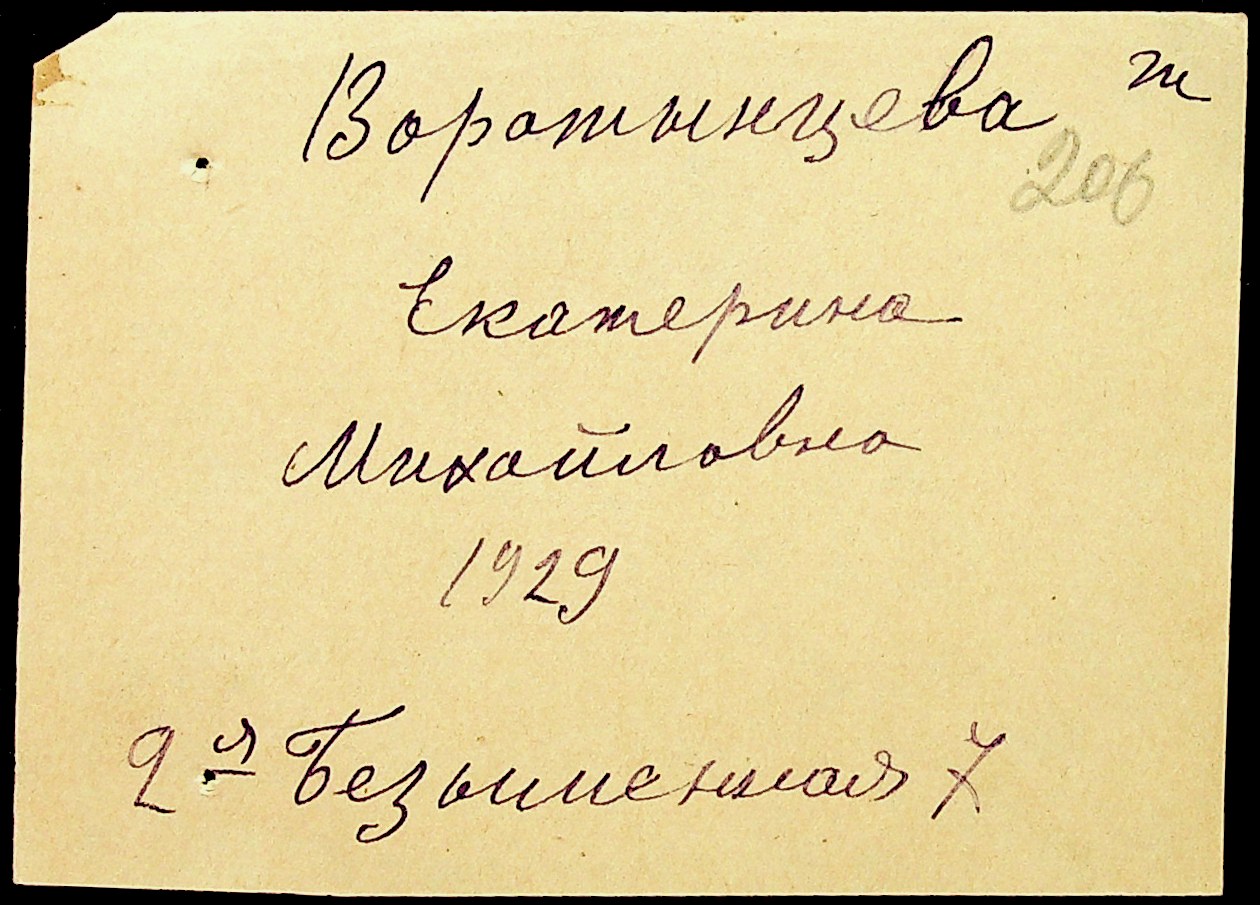 Воротынцева
206
Екатерина
Михайловна
1929
2я Безыменная 7